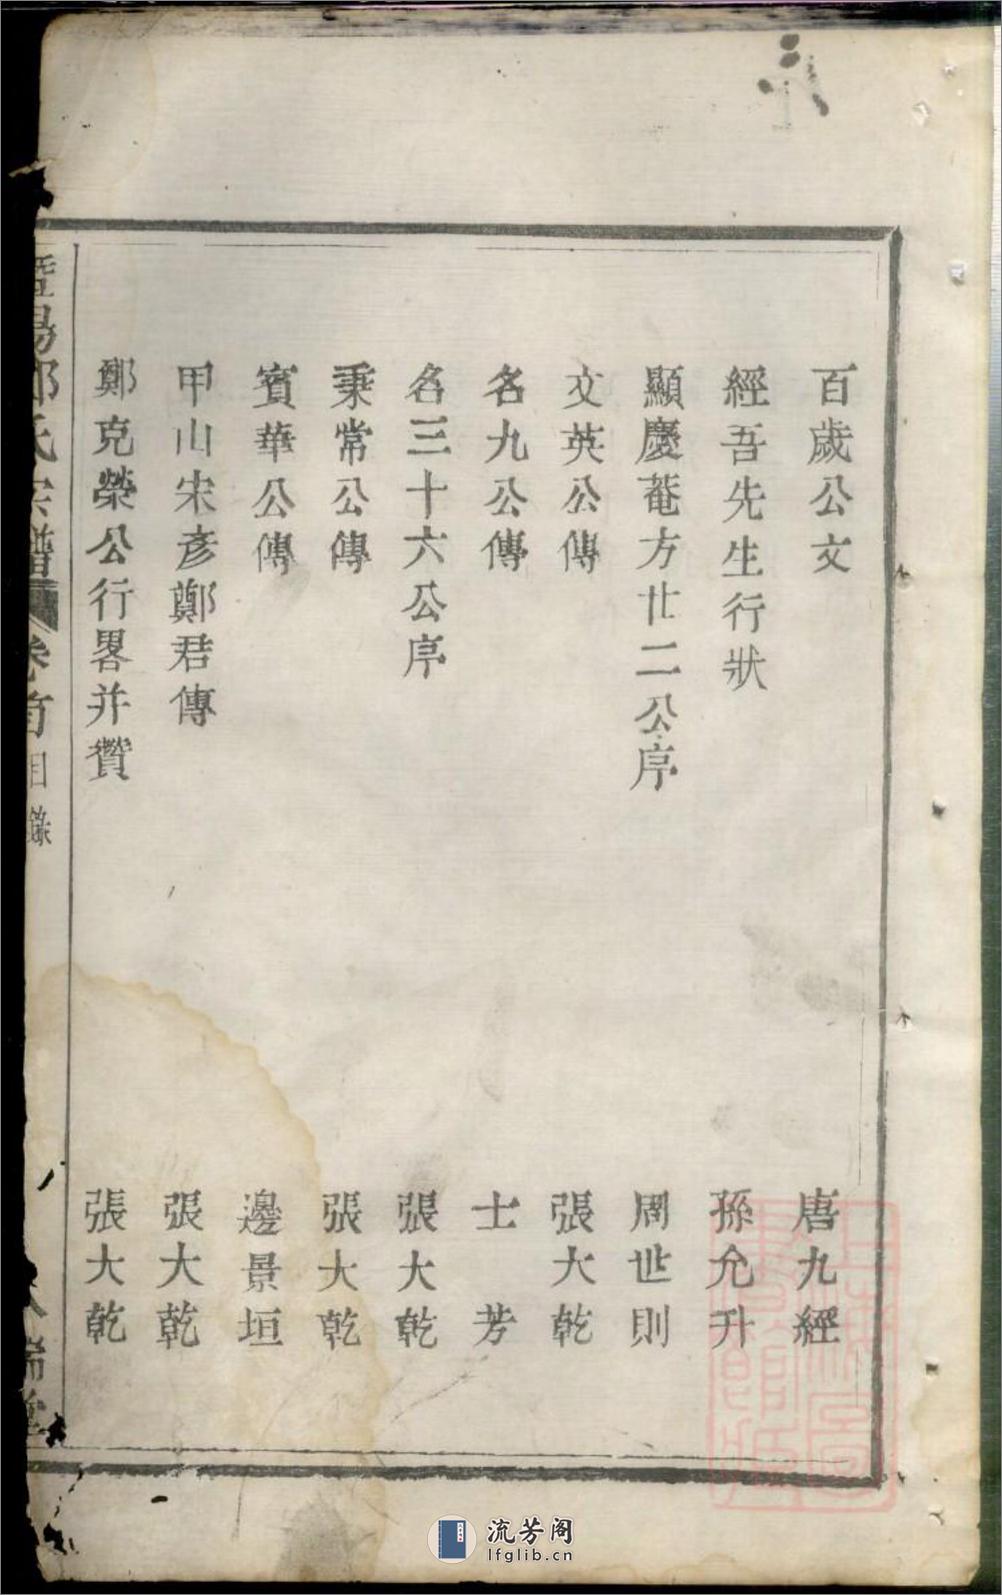 百歲公文 唐九經
經吾先生行狀 孫允升
顯慶菴方廿二公序 周世則
文英公傳 張大乾
名九公傳 士芳
名三十六公序 張大乾
秉常公傳 張大乾
賓華公傳 邊景垣
甲山宋彥鄭君傳 張大乾
鄭克榮公行畧并贊 張大乾
暨陽鄭氏宗譜 卷首 目錄
流芳阁
lfglib.cn